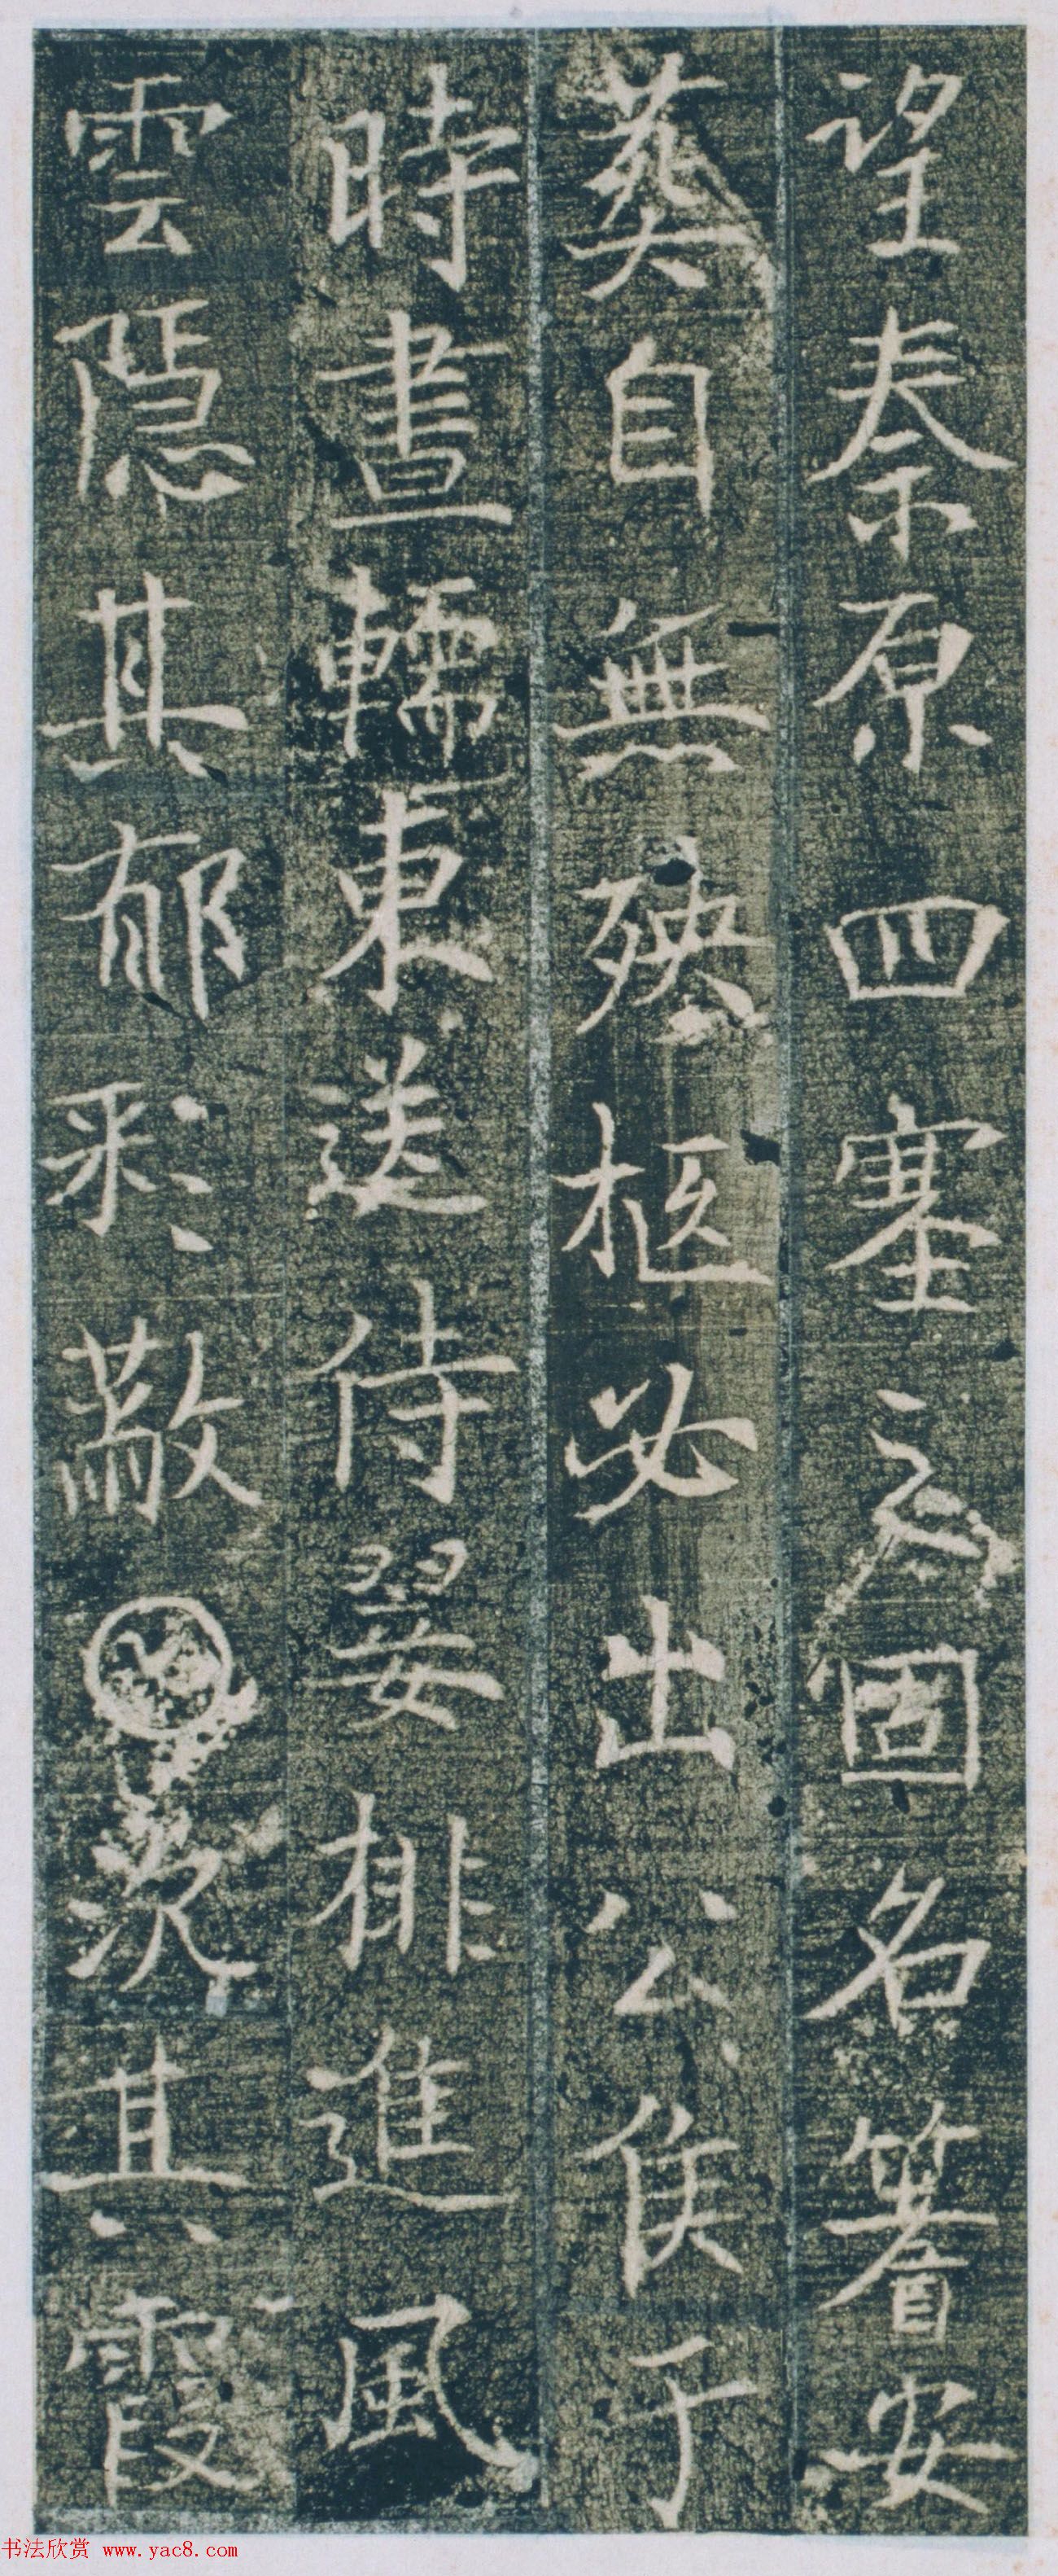 望秦原四塞之固名箸安
葬自無殃柩必出公侯于
時畫轜東送侍翣排進風
雲隱其郁彩蔽其霞
书法欣赏 www.yac8.com